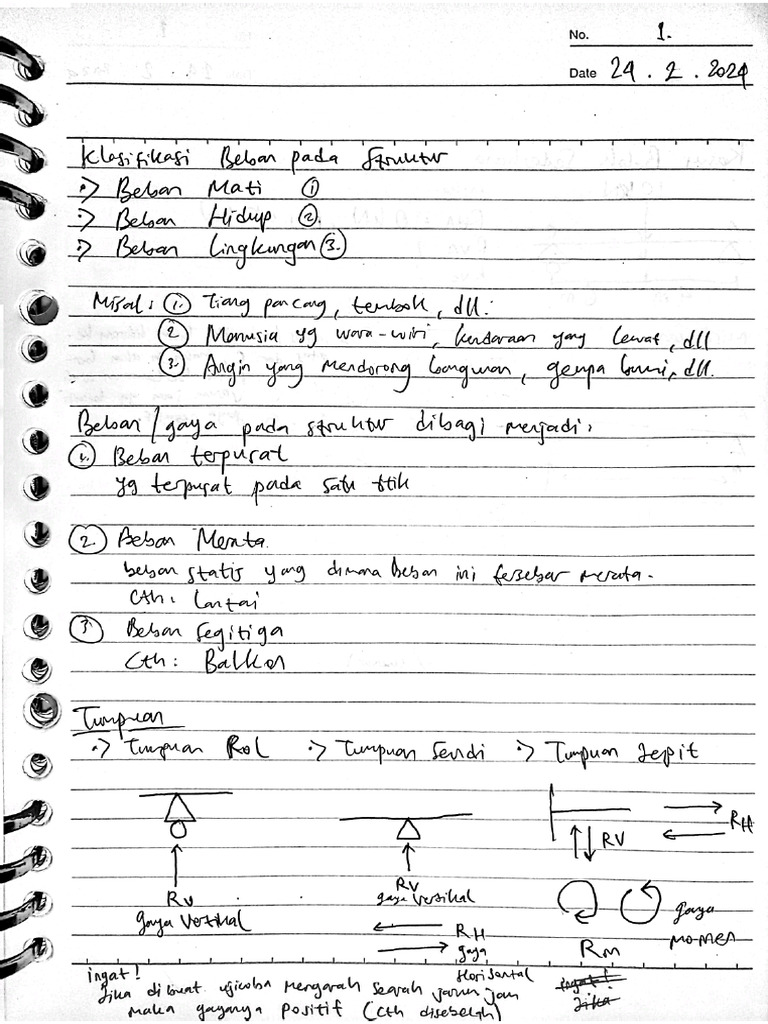 No. 1.
Date 24 . 2 . 2024
Klasifikasi Beban pada Struktur
:> Beban Mati ①
:> Beban Hidup ②.
:> Beban Lingkungan ③.
Misal : ①. Tiang pancang, tembok, dll.
② Manusia yg wara-wiri, kendaraan yang lewat, dll
③. Angin yang mendorong bangunan, gempa bumi, dll.
Beban/gaya pada struktur dibagi menjadi :
①. Beban terpusat
yg terpusat pada satu titik
②. Beban Merata.
beban statis yang dimana beban ini tersebar merata.
Cth : Lantai
③ Beban Segitiga
Cth : Balkon
Tumpuan
:> Tumpuan Rol :> Tumpuan Sendi :> Tumpuan Jepit
RH
RV
Rv
gaya Vertikal
Rv
gaya Vertikal
gaya
momen
RH
gaya
Horisontal
Rm
ingat!
Jika dibuat ujicoba mengarah searah jarum jam
maka gayanya positif (cth disebelah)
ingat!
Jika